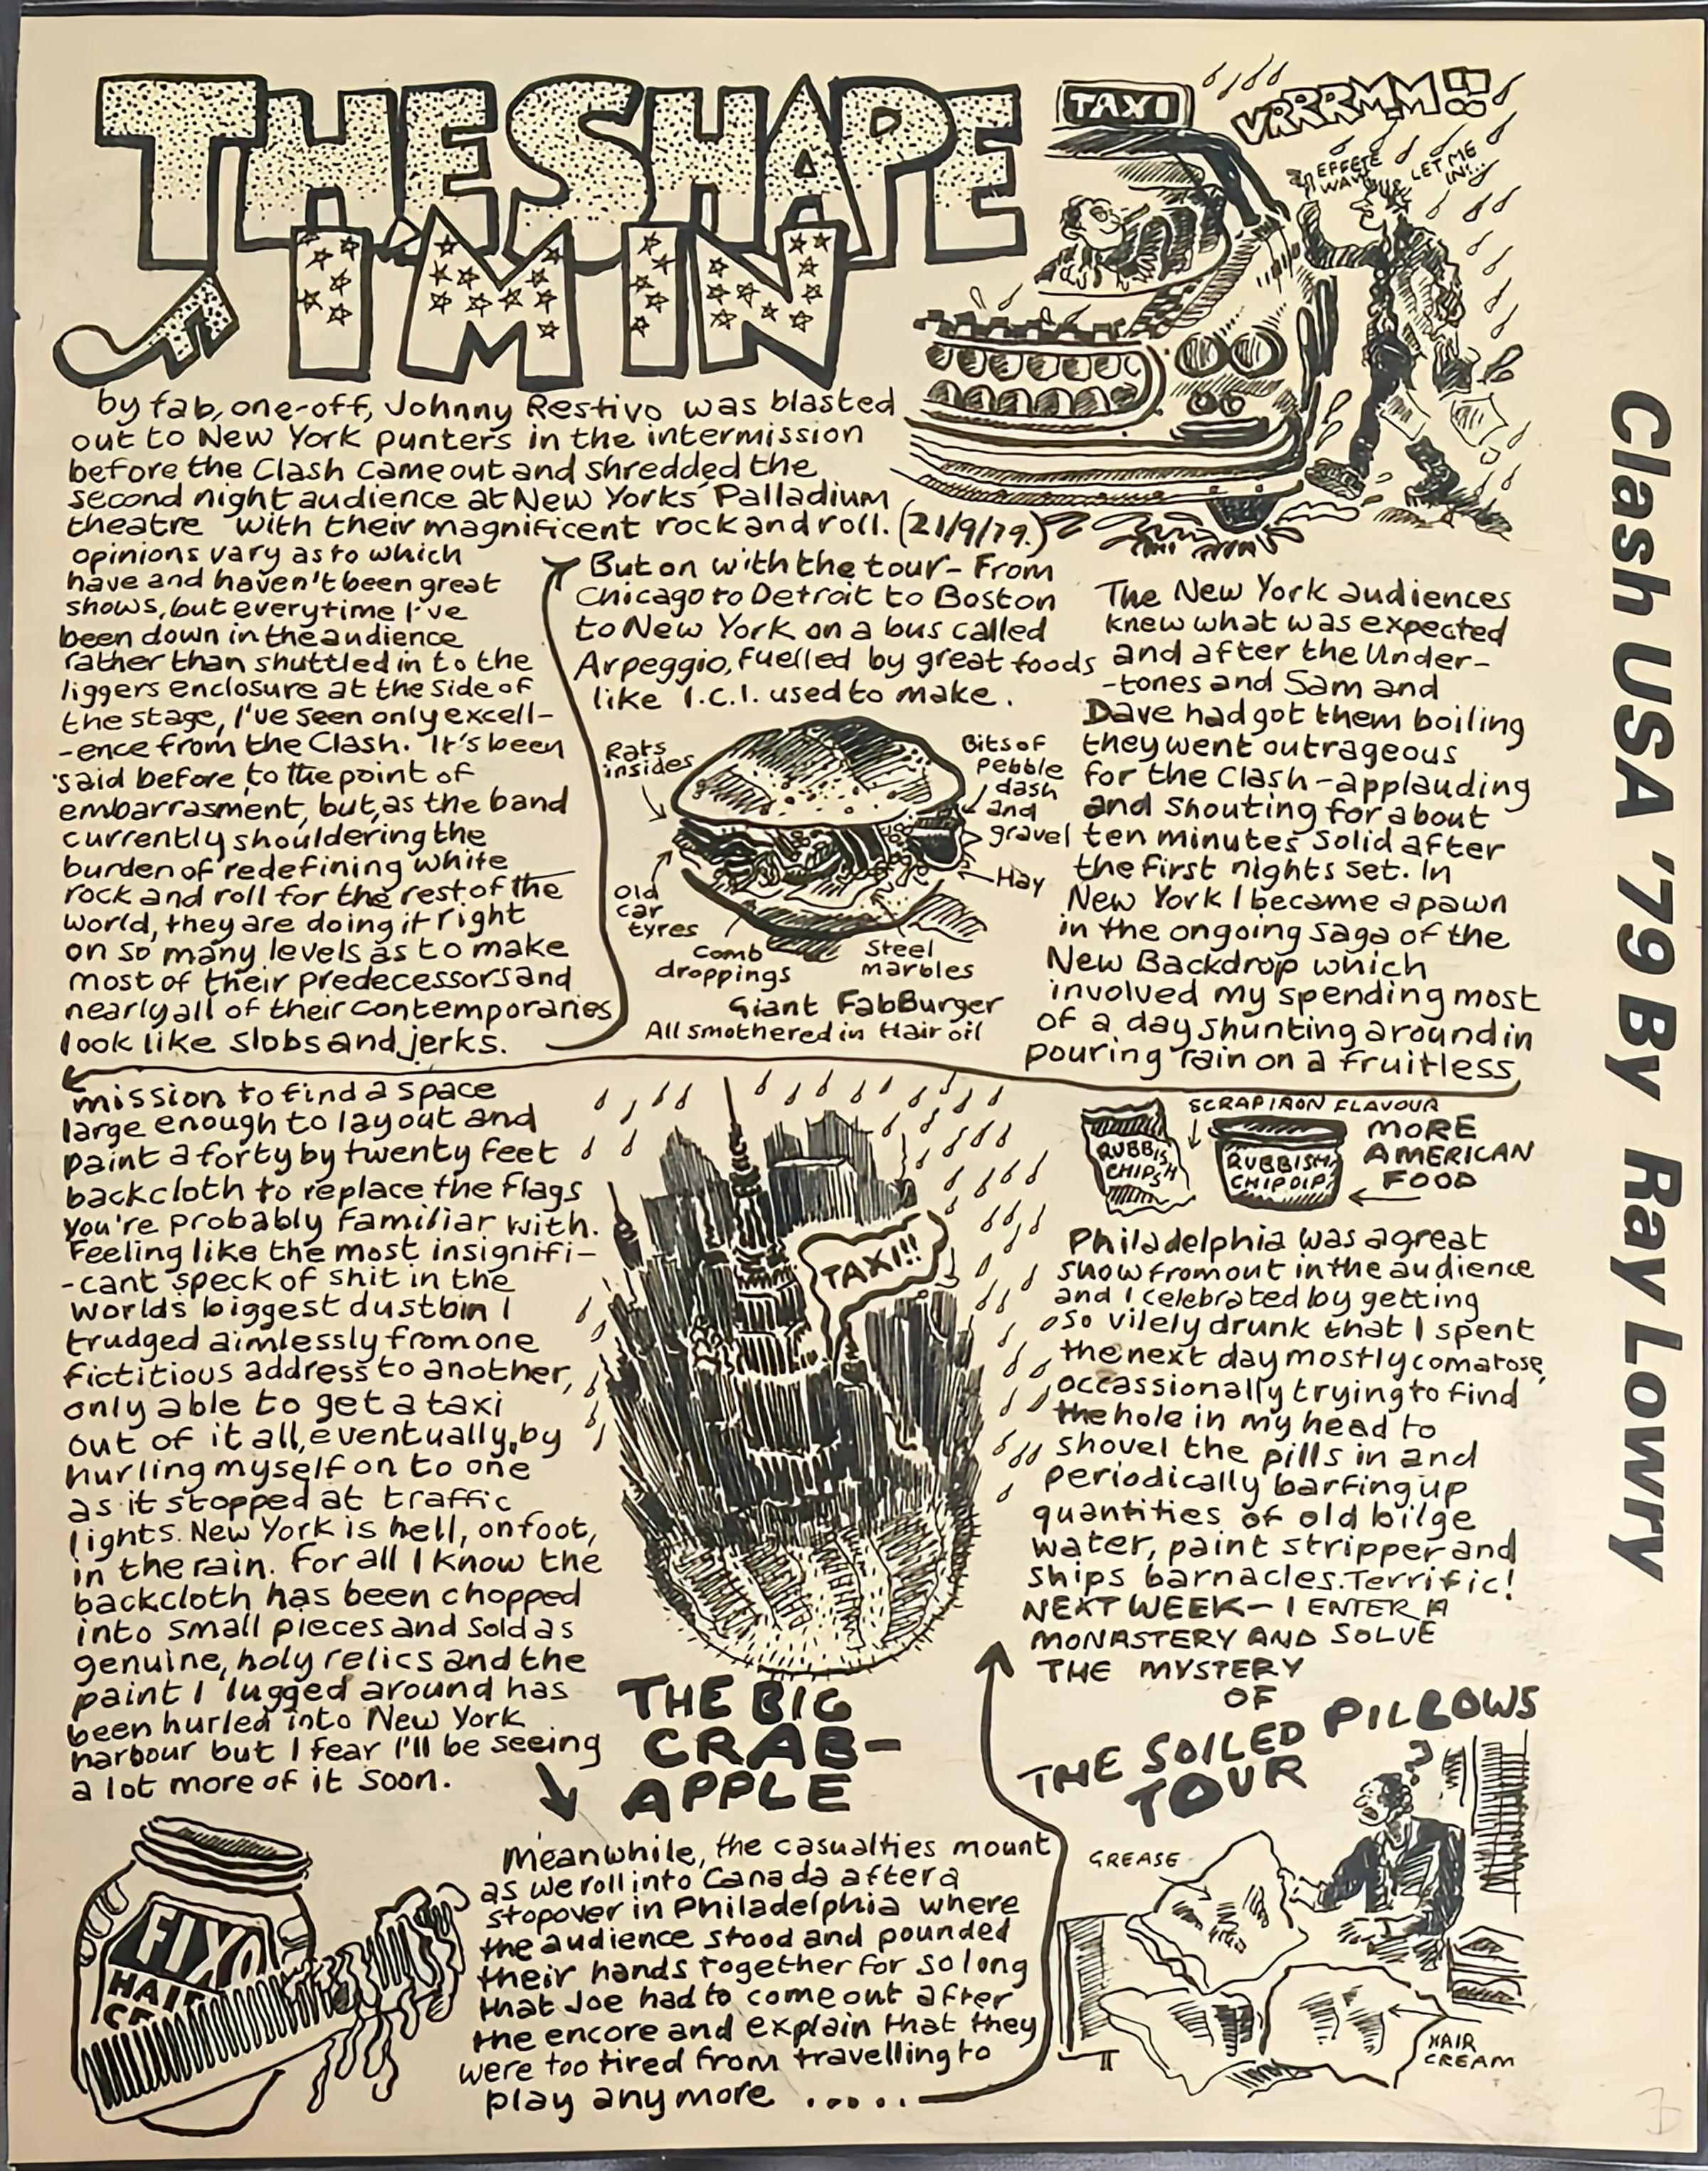 THE SHAPE
I'M IN
TAXI
VRRRMM!!
EFFETE
WAVE
LET ME
IN!..
by fab, one-off, Johnny Restivo was blasted
out to New York punters in the intermission
before the Clash came out and shredded the
second night audience at New Yorks Palladium
theatre with their magnificent rock and roll. (21/9/79.)
opinions vary as to which
have and haven't been great
shows, but everytime I've
been down in the audience
rather than shuttled in to the
liggers enclosure at the side of
the stage, I've seen only excell-
-ence from the Clash. It's been
said before, to the point of
embarrasment, but, as the band
currently shouldering the
burden of redefining white
rock and roll for the rest of the
world, they are doing it right
on so many levels as to make
most of their predecessors and
nearly all of their contemporaries
look like slobs and jerks.
But on with the tour - From
Chicago to Detroit to Boston
to New York on a bus called
Arpeggio, fuelled by great foods
like I.C.I. used to make.
Rats
insides
Bits of
pebble
dash
and
gravel
Hay
Old
car
tyres
Comb
droppings
Steel
marbles
Giant FabBurger
All smothered in Hair oil
The New York audiences
knew what was expected
and after the Under-
-tones and Sam and
Dave had got them boiling
they went outrageous
for the Clash - applauding
and shouting for about
ten minutes solid after
the first nights set. In
New York I became a pawn
in the ongoing saga of the
New Backdrop which
involved my spending most
of a day shunting around in
pouring rain on a fruitless
mission to find a space
large enough to layout and
paint a forty by twenty feet
backcloth to replace the flags
you're probably familiar with.
Feeling like the most insignifi-
-cant speck of shit in the
worlds biggest dustbin I
trudged aimlessly from one
fictitious address to another,
only able to get a taxi
out of it all, eventually, by
hurling myself on to one
as it stopped at traffic
lights. New York is hell, on foot,
in the rain. For all I know the
backcloth has been chopped
into small pieces and sold as
genuine, holy relics and the
paint I lugged around has
been hurled into New York
harbour but I fear I'll be seeing
a lot more of it soon.
TAXI!!
THE BIG
CRAB-
APPLE
FIXO
HAIR
CR
Meanwhile, the casualties mount
as we roll into Canada after a
stopover in Philadelphia where
the audience stood and pounded
their hands together for so long
that Joe had to come out after
the encore and explain that they
were too tired from travelling to
play any more .....
SCRAP IRON FLAVOUR
RUBBISH
CHIPS
RUBBISH
CHIP DIP
MORE
AMERICAN
FOOD
Philadelphia was a great
show from out in the audience
and I celebrated by getting
so vilely drunk that I spent
the next day mostly comatose,
occassionally trying to find
the hole in my head to
shovel the pills in and
periodically barfing up
quantities of old bilge
water, paint stripper and
ships barnacles. Terrific!
NEXT WEEK - I ENTER A
MONASTERY AND SOLVE
THE MYSTERY
OF
THE SOILED PILLOWS
TOUR
?
GREASE
HAIR
CREAM
Clash USA '79 By Ray Lowry